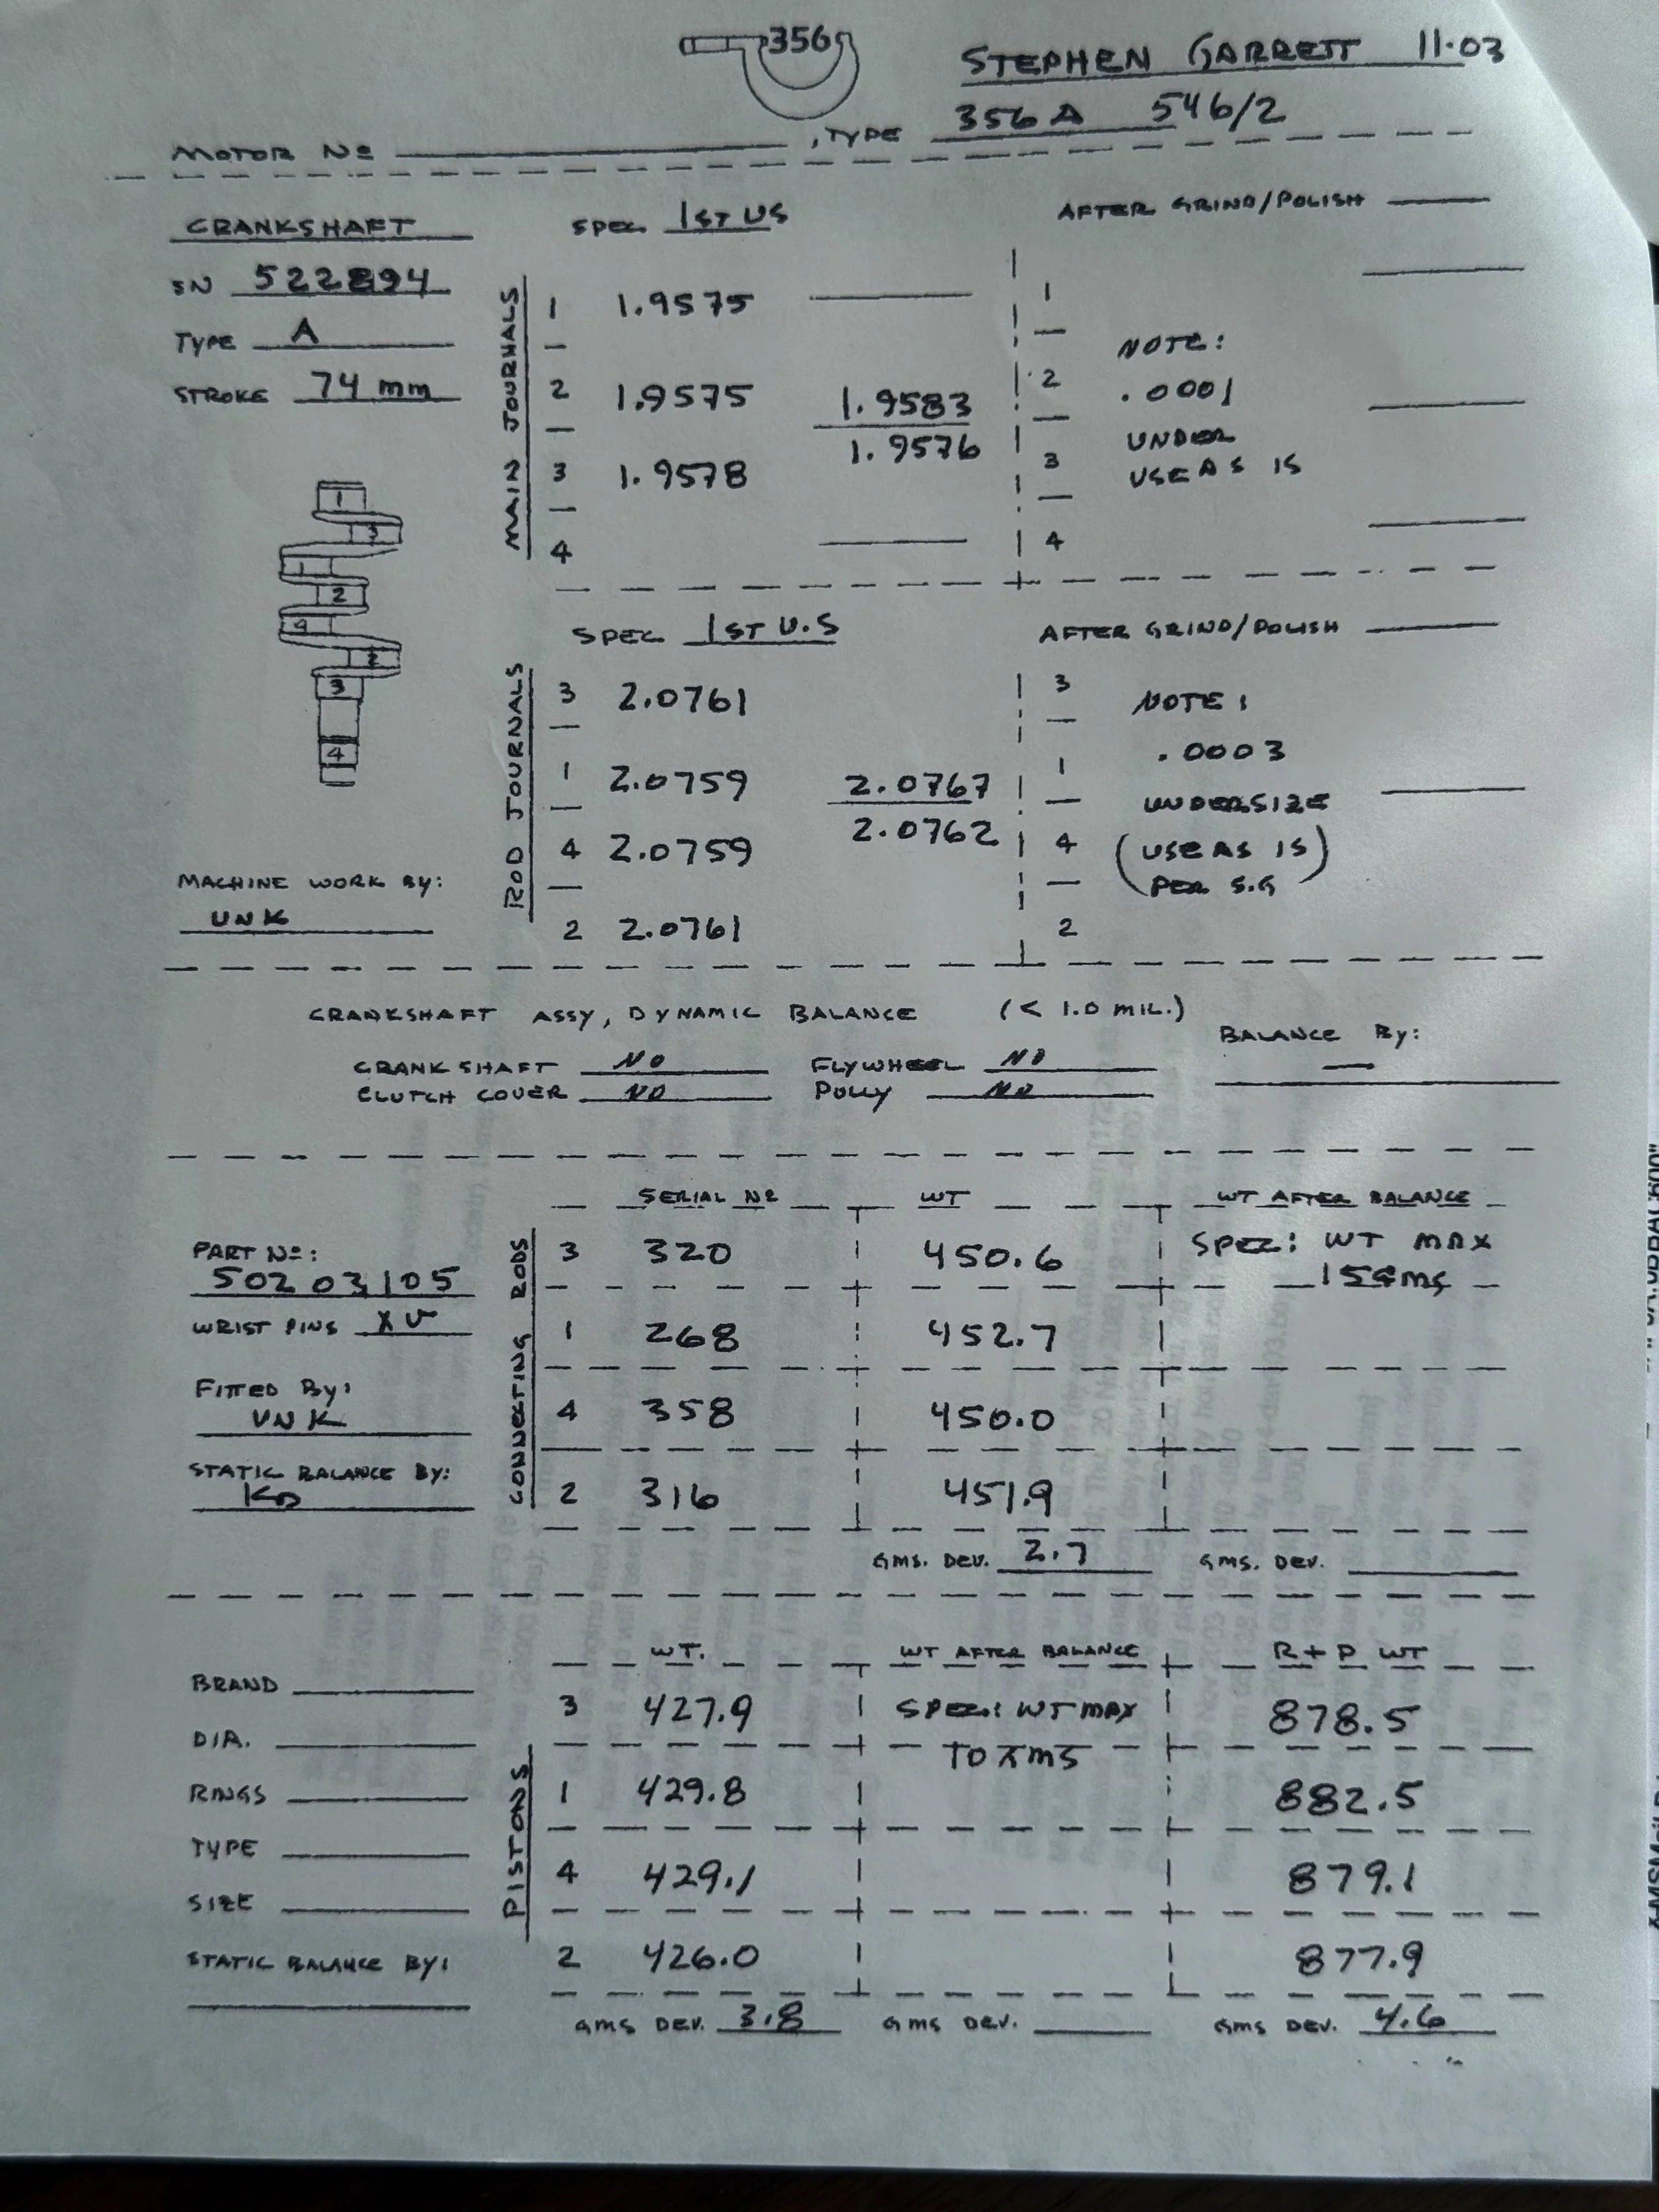 356
STEPHEN GARRETT 11·03
MOTOR Nº , TYPE 356 A 546/2
CRANKSHAFT
SN 522894
TYPE A
STROKE 74 mm
1
3
1
2
4
2
3
4
MACHINE WORK BY:
UNK
MAIN JOURNALS
SPEC. 1ST US
1 1.9575
2 1.9575 1.9583
1.9576
3 1.9578
4
AFTER GRIND/POLISH
1
2
3
4
NOTE:
.0001
UNDER
USE AS IS
ROD JOURNALS
SPEC 1ST U.S
3 2.0761
1 2.0759 2.0767
2.0762
4 2.0759
2 2.0761
AFTER GRIND/POLISH
3
1
4
2
NOTE:
.0003
UNDERSIZE
(USE AS IS)
PER S.G
CRANKSHAFT ASSY, DYNAMIC BALANCE (< 1.0 MIL.)
BALANCE BY:
CRANKSHAFT NO FLYWHEEL NO —
CLUTCH COVER NO PULLY NO
PART Nº:
50203105
WRIST PINS
FITTED BY:
UNK
STATIC BALANCE BY:
CONNECTING RODS
SERIAL Nº WT WT AFTER BALANCE
3 320 450.6 SPEC: WT MAX
1 268 452.7
4 358 450.0
2 316 451.9
GMS. DEV. 2.7 GMS. DEV.
BRAND
DIA.
RINGS
TYPE
SIZE
STATIC BALANCE BY:
PISTONS
WT. WT AFTER BALANCE R + P WT
3 427.9 SPEC: WT MAX 878.5
1 429.8 882.5
4 429.1 879.1
2 426.0 877.9
GMS DEV. 3.8 GMS DEV. GMS DEV. 4.6